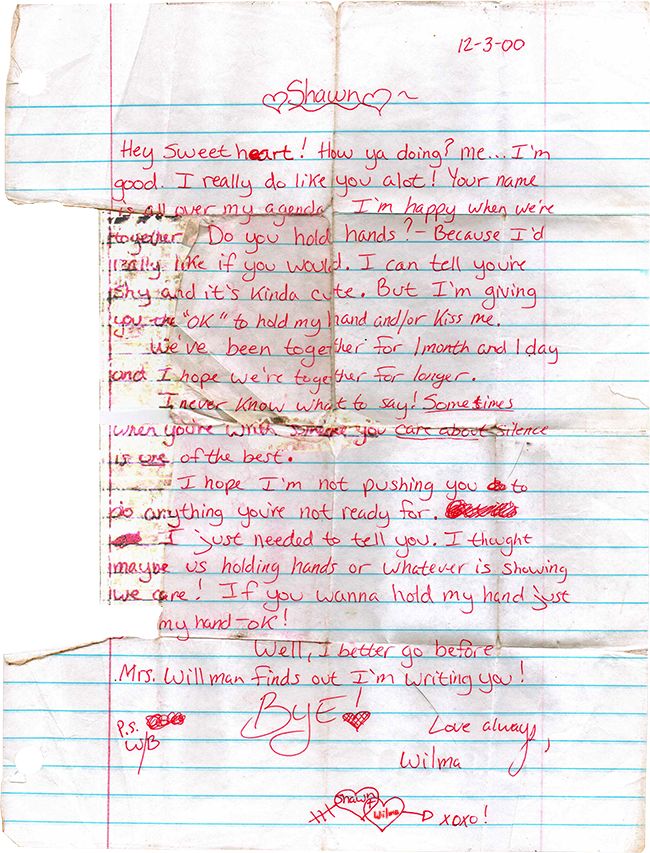 12-3-00
Shawn ~
Hey Sweet heart! How ya doing? me... I'm
good. I really do like you alot! Your name
is all over my agenda. I'm happy when we're
together. Do you hold hands? - Because I'd
really like if you would. I can tell you're
shy and it's kinda cute. But I'm giving
you the "OK" to hold my hand and/or kiss me.
We've been together for 1 month and 1 day
and I hope we're together for longer.
I never know what to say! Sometimes
when you're with someone you care about silence
is one of the best.
I hope I'm not pushing you to
do anything you're not ready for.
I just needed to tell you. I thught
maybe us holding hands or whatever is showing
we care! If you wanna hold my hand just
my hand-OK!
Well, I better go before
Mrs. Willman finds out I'm writing you!
BYE!
P.S.
W/B
Love always,
Wilma
Shawn + Wilma xoxo!